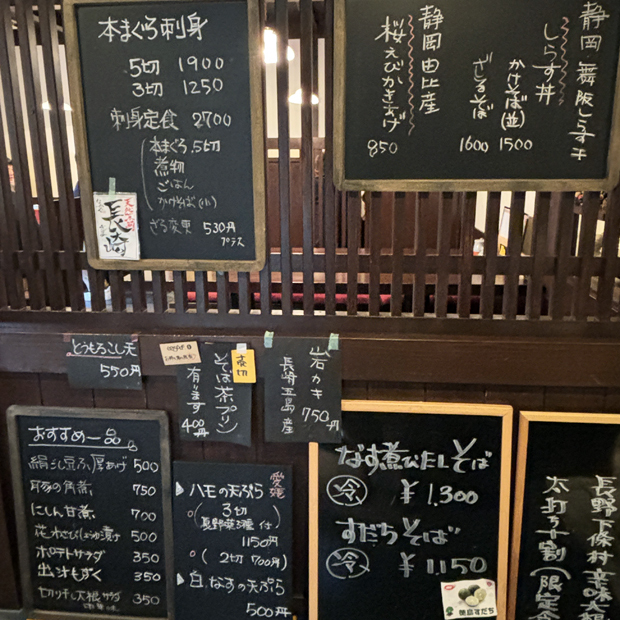 本まぐろ刺身
5切 1900
3切 1250
刺身定食 2700
本まぐろ5切
煮物
ごはん
かけそば(小)
ざる変更 530円
プラス
長崎
静岡 舞阪しらす干
しらす丼
かけそば(並) 1500
ざるそば 1600
静岡由比産
桜えびかきあげ
850
とうもろこし天
550円
そば茶プリン
有ります
400円
売切
岩カキ 750円
長崎五島産
おすすめ一品
絹ごし豆ふ厚あげ 500
豚の角煮 750
にしん甘煮 700
花わさびしょうゆ漬け 500
ポテトサラダ 350
出汁もずく 350
切り干し大根サラダ 350
愛媛
ハモの天ぷら
3切
長野菜3種 付
1150円
(2切 700円)
白なすの天ぷら
500円
なす煮びたしそば
冷 ¥1,300
すだちそば
冷 ¥1150
徳島すだち
長野下條村辛味大根
太打ち十割(限定